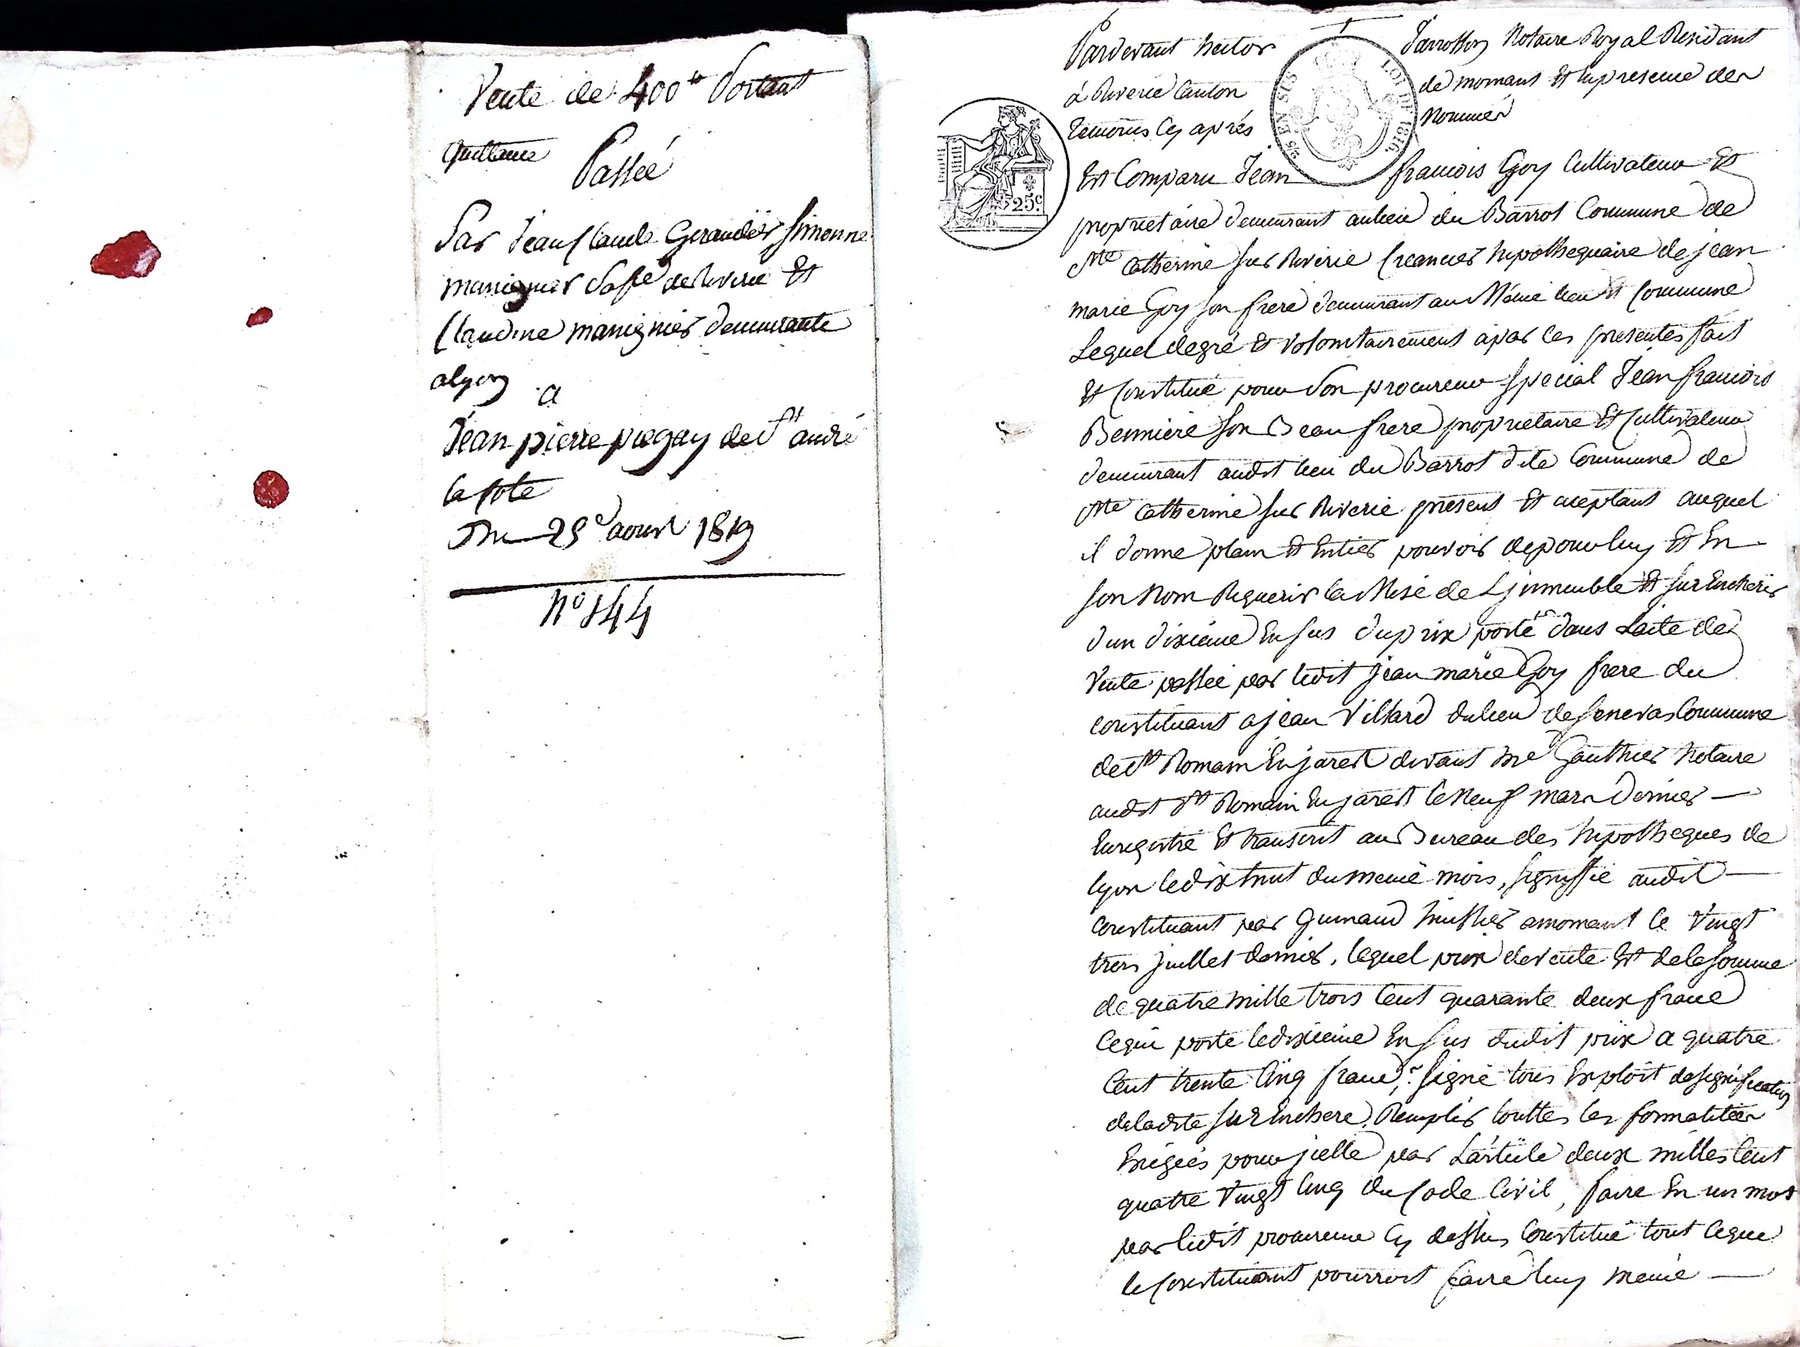 Vente de 400 tt Portant
Quittance
Passée
Par Jean Claude Geraudier Simonne
manignier Passe de Riverie Et
Claudine manignier demeurante
alyon
a
Jean pierre piegay de St andré
la Cote
Du 25e aoust 1819
N° 144
Pardevant hector Parrossy Notaire Royal Residant
à Riverie Canton de mornant Et En presence des
temoins Cy aprés Nommés
25 EN SUS
LOI DE 1816
25c.
Est Comparu Jean francois Goy Cultivateur Et
proprietaire demeurant aulieu du Barrot Commune de
Ste Catherine sur Riverie Creancier hipothequaire de jean
marie Goy son frere demeurant au Même lieu Et Commune
Lequel degré Et volontairement a par les presentes fait
Et Constitué pour Son procureur Special Jean francois
Bernniere son Beau frere proprietaire Et Cultivateur
demeurant audit lieu du Barrot dite Commune de
Ste Catherine sur Riverie present Et aceptant auquel
il donne plain Et Entier pouvoir depour luy Et En
son Nom Requerir la Mise de L'jmmeuble Et surEncherir
d'un dixieme En sus du prix porté dans L'acte de
Vente passée par ledit jean marie Goy frere du
constituant a jean Villard du lieu de senevas Commune
de St Romain En jarest devant me Gauthier Notaire
audit St Romain En jarest le Neuf mars Dernier
Enregistré Et transcrit au Bureau des hipotheques de
lyon le dix huit du meme mois, signiffié audit
constituant par Guinaud huissier amornant le Vingt
trois juillet dernier, lequel prix devente Est de la somme
de quatre mille trois Cent quarante deux franc
Cequi porte ledixieme En sus dudit prix a quatre
Cent trente Cinq franc, signé tous Exploit designification
deladite surEnchere, Remplir touttes les formalitées
Exigées pour jcelle par L'article deux milles Cent
quatre Vingt Cinq du Code Civil, faire En un mot
par ledit procureur Cy dessus Constitué tout Ceque
le Constituant pourroit faire luy meme